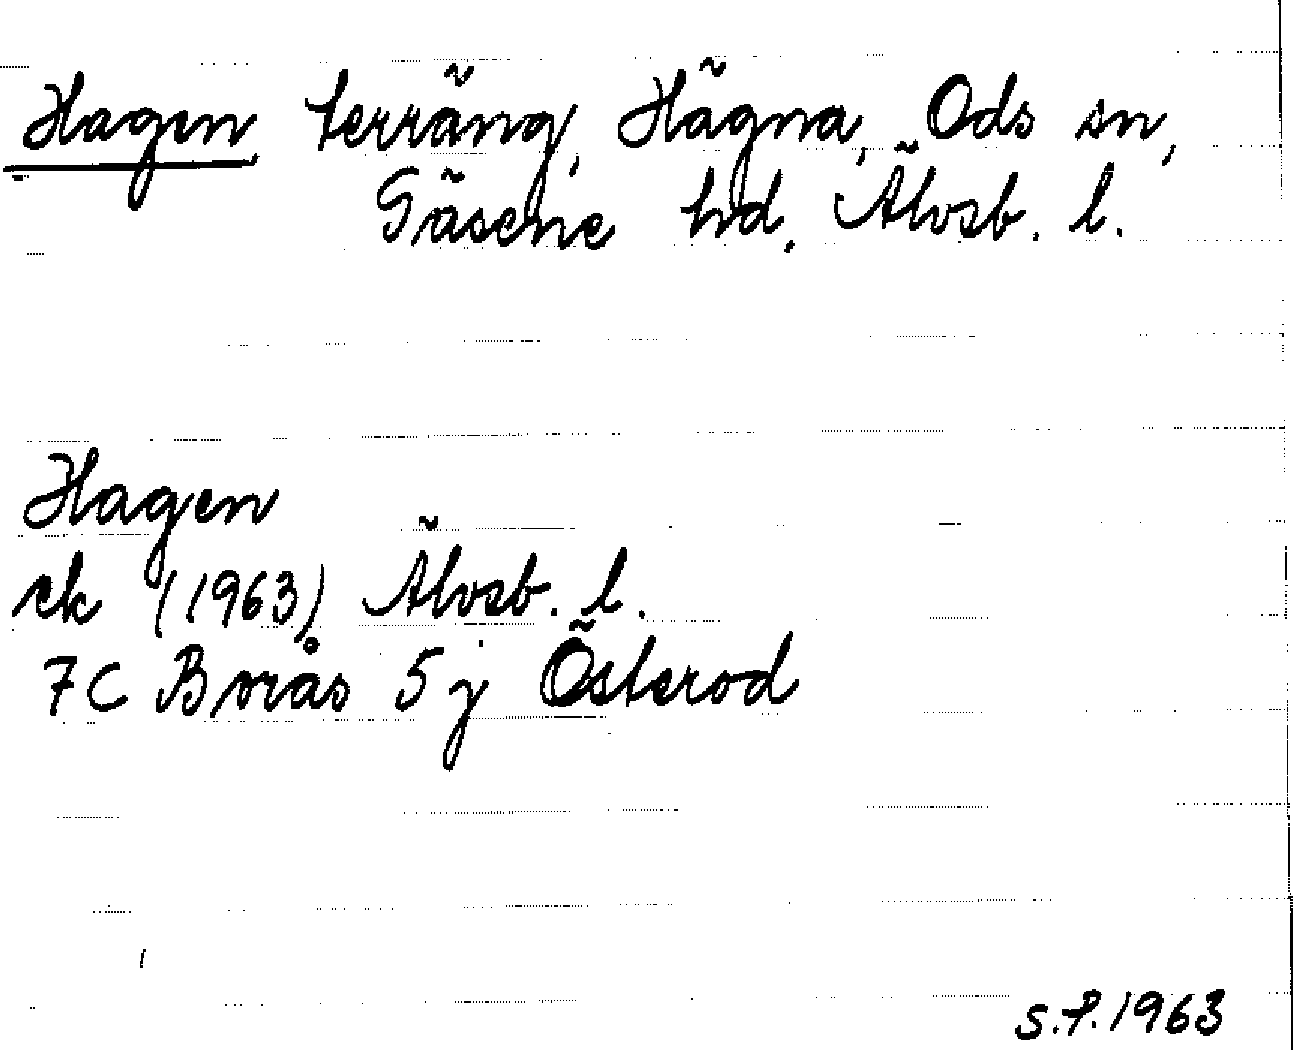 Hagen, terräng, Hägna, Ods sn,
Gäsene hd, Älvsb. l.
Hagen
ek (1963) Älvsb. l.
7C Borås 5 j Österod
S.F. 1963